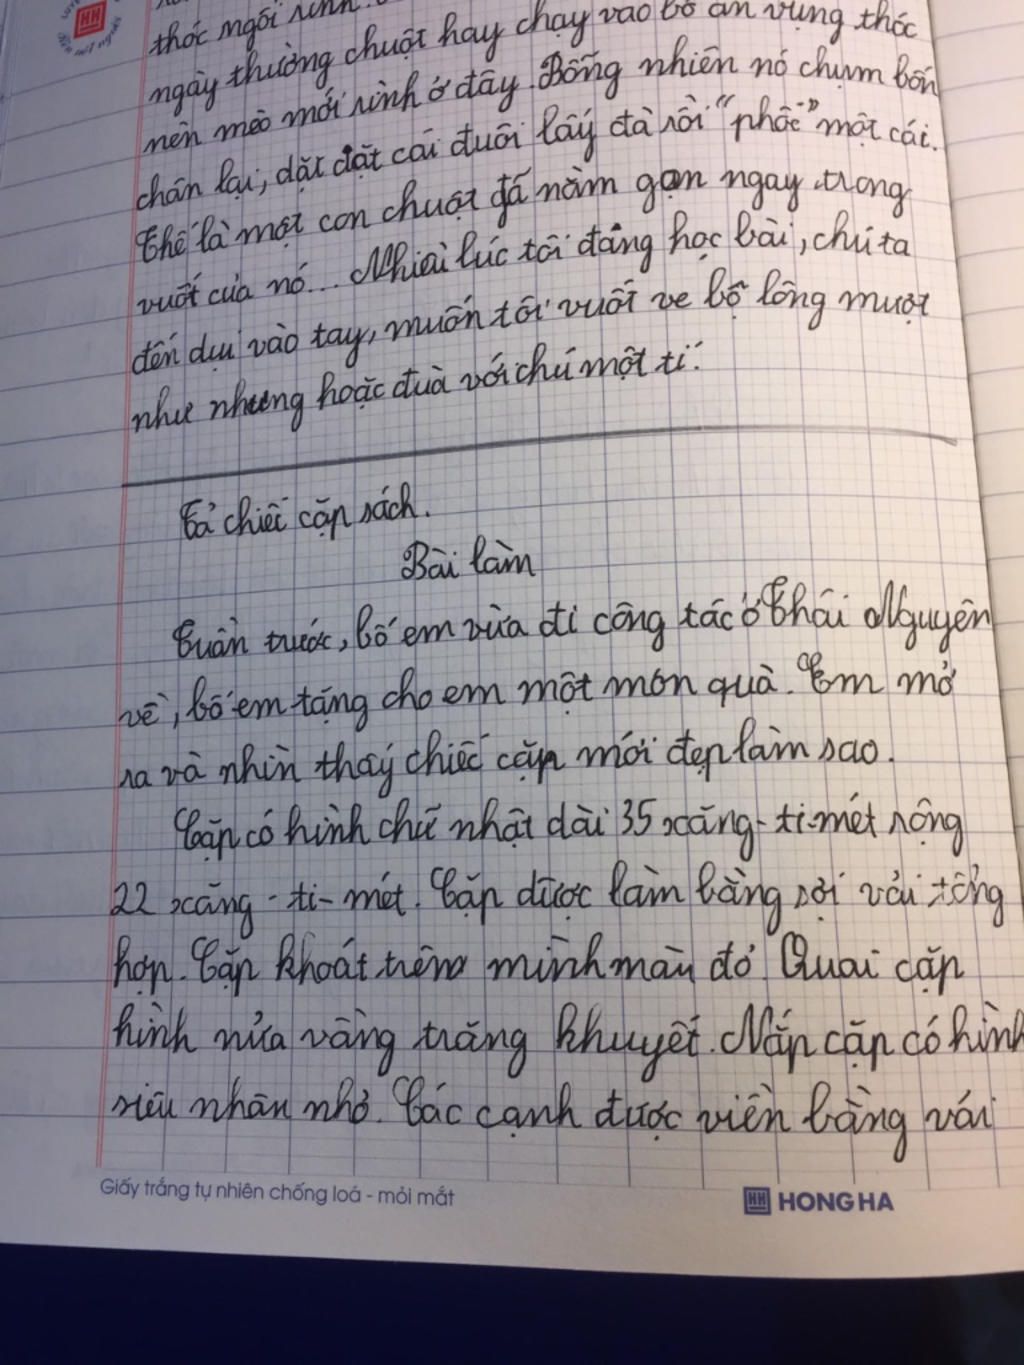 thóc ngồi rình.
ngày thường chuột hay chạy vào bồ ăn vụng thóc
nên mèo mới rình ở đây. Bỗng nhiên nó chụm bốn
chân lại, dặt đặt cái đuôi lấy đà rồi "phốc" một cái.
Thế là một con chuột đã nằm gọn ngay trong
vuốt của nó... Nhiều lúc tôi đang học bài, chú ta
đến dụi vào tay, muốn tôi vuốt ve bộ lông mượt
như nhung hoặc đùa với chú một tí.
Tả chiếc cặp sách.
Bài làm
Tuần trước, bố em vừa đi công tác ở Thái Nguyên
về, bố em tặng cho em một món quà. Em mở
ra và nhìn thấy chiếc cặp mới đẹp làm sao.
Cặp có hình chữ nhật dài 35 xăng-ti-mét rộng
22 xăng-ti-mét. Cặp được làm bằng sợi vải tổng
hợp. Cặp khoát trên mình màu đỏ. Quai cặp
hình nửa vầng trăng khuyết. Nắp cặp có hình
siêu nhân nhỏ. Các cạnh được viền bằng vải
Giấy trắng tự nhiên chống loá - mỏi mắt
HH HONG HA